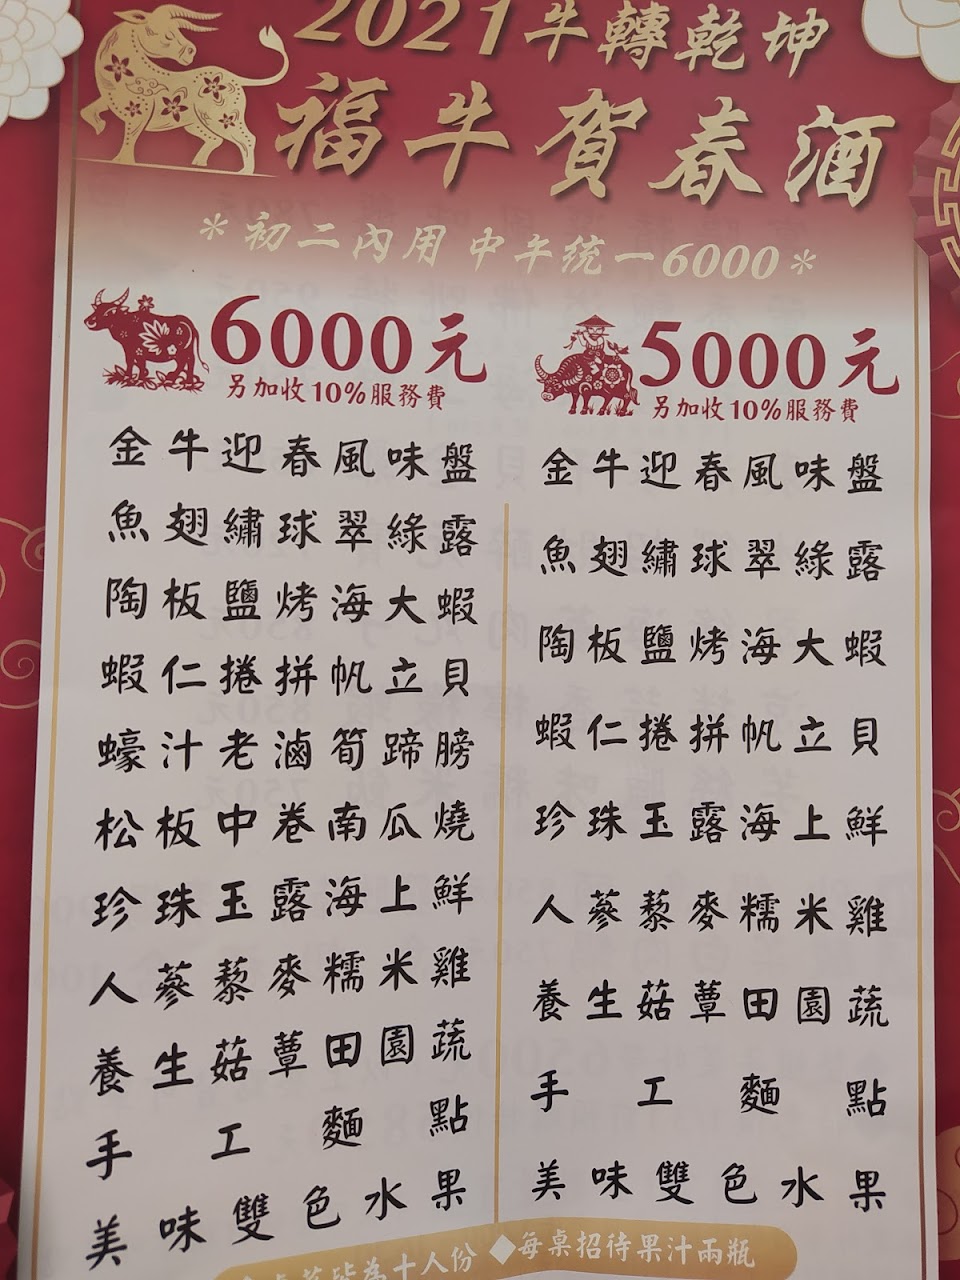 2021牛轉乾坤
福牛賀春酒
＊初二內用 中午統一6000＊
6000元
另加收10%服務費
金牛迎春風味盤
魚翅繡球翠綠露
陶板鹽烤海大蝦
蝦仁捲拼帆立貝
蠔汁老滷筍蹄膀
松板中卷南瓜燒
珍珠玉露海上鮮
人蔘藜麥糯米雞
養生菇蕈田園蔬
手工麵點
美味雙色水果
5000元
另加收10%服務費
金牛迎春風味盤
魚翅繡球翠綠露
陶板鹽烤海大蝦
蝦仁捲拼帆立貝
珍珠玉露海上鮮
人蔘藜麥糯米雞
養生菇蕈田園蔬
手工麵點
美味雙色水果
皆為十人份 ◆每桌招待果汁兩瓶